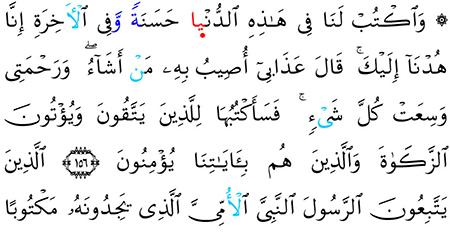 ۞ وَٱكۡتُبۡ لَنَا فِی هَـٰذِهِ ٱلدُّنۡیَا حَسَنَةࣰ وَفِی ٱلۡـَٔاخِرَةِ إِنَّا
هُدۡنَاۤ إِلَیۡكَۚ قَالَ عَذَابِیۤ أُصِیبُ بِهِۦ مَنۡ أَشَاۤءُۖ وَرَحۡمَتِی
وَسِعَتۡ كُلَّ شَیۡءࣲۚ فَسَأَكۡتُبُهَا لِلَّذِینَ یَتَّقُونَ وَیُؤۡتُونَ
ٱلزَّكَوٰةَ وَٱلَّذِینَ هُم بِـَٔایَـٰتِنَا یُؤۡمِنُونَ ۝١٥٦ ٱلَّذِینَ
یَتَّبِعُونَ ٱلرَّسُولَ ٱلنَّبِیَّ ٱلۡأُمِّیَّ ٱلَّذِی یَجِدُونَهُۥ مَكۡتُوبًا